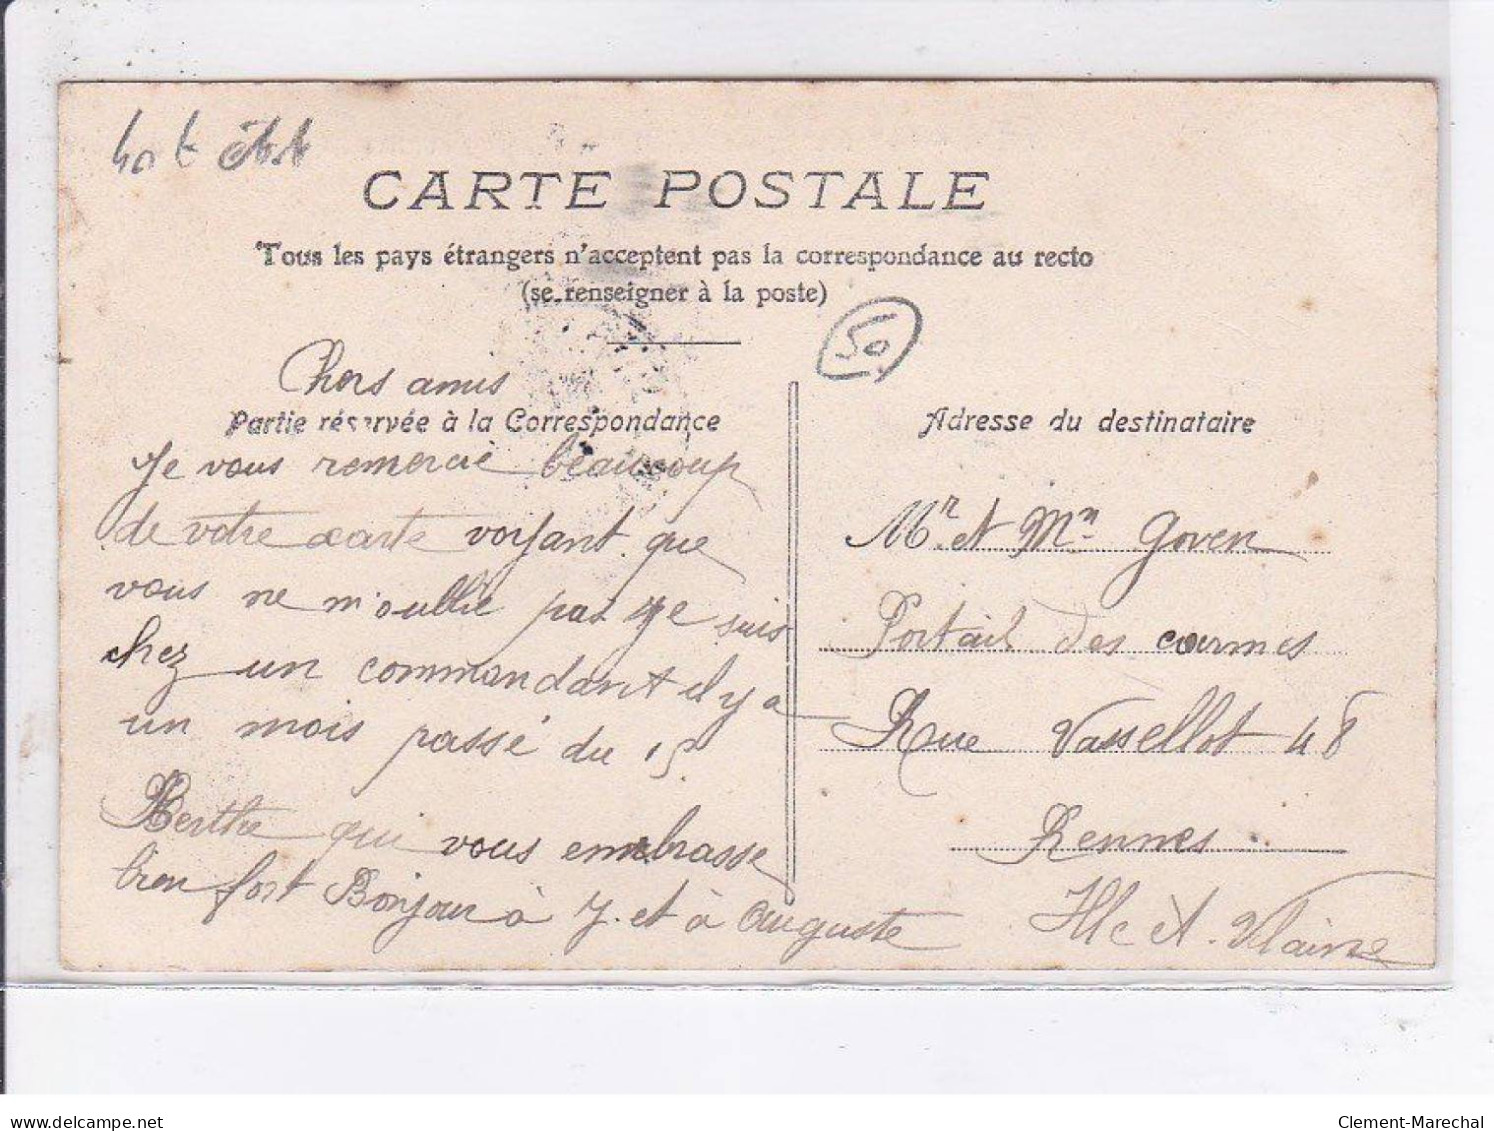 CARTE POSTALE
Tous les pays étrangers n'acceptent pas la correspondance au recto
(se renseigner à la poste)
50
Chers amis
Partie réservée à la Correspondance
Je vous remercie beaucoup
de votre carte voyant que
vous ne m'oublie pas Je suis
chez un commandant il y a
un mois passé du 15
Berthe qui vous embrasse
bien fort Bonjour à J. et à Auguste
Adresse du destinataire
Mr et Mm Goven
Portail des carmes
Rue Vasselot 48
Rennes
Ille et Vilaine
delcampe.net
Clement-Marechal